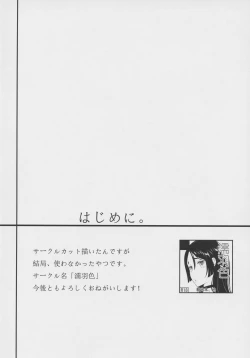 はじめに。
サークルカット描いたんですが
結局、使わなかったやつです。
サークル名「濡羽色」
今後ともよろしくおねがいします!
濡羽色